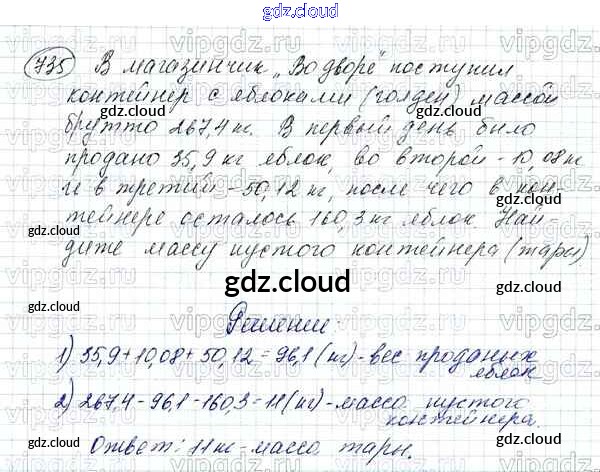 gdz.cloud
735 В магазинчик „Во дворе" поступил
контейнер с яблоками (голден) массой
брутто 267,4 кг. В первый день было
продано 35,9 кг яблок, во второй - 10,08 кг
и в третий - 50,12 кг, после чего в кон-
тейнере осталось 160,3 кг яблок. Най-
дите массу пустого контейнера (тары)
gdz.cloud
Решение.
1) 35,9 + 10,08 + 50,12 = 96,1 (кг) - вес проданых
яблок
2) 267,4 - 96,1 - 160,3 = 11 (кг) - масса пустого
контейнера.
Ответ: 11 кг - масса тары.